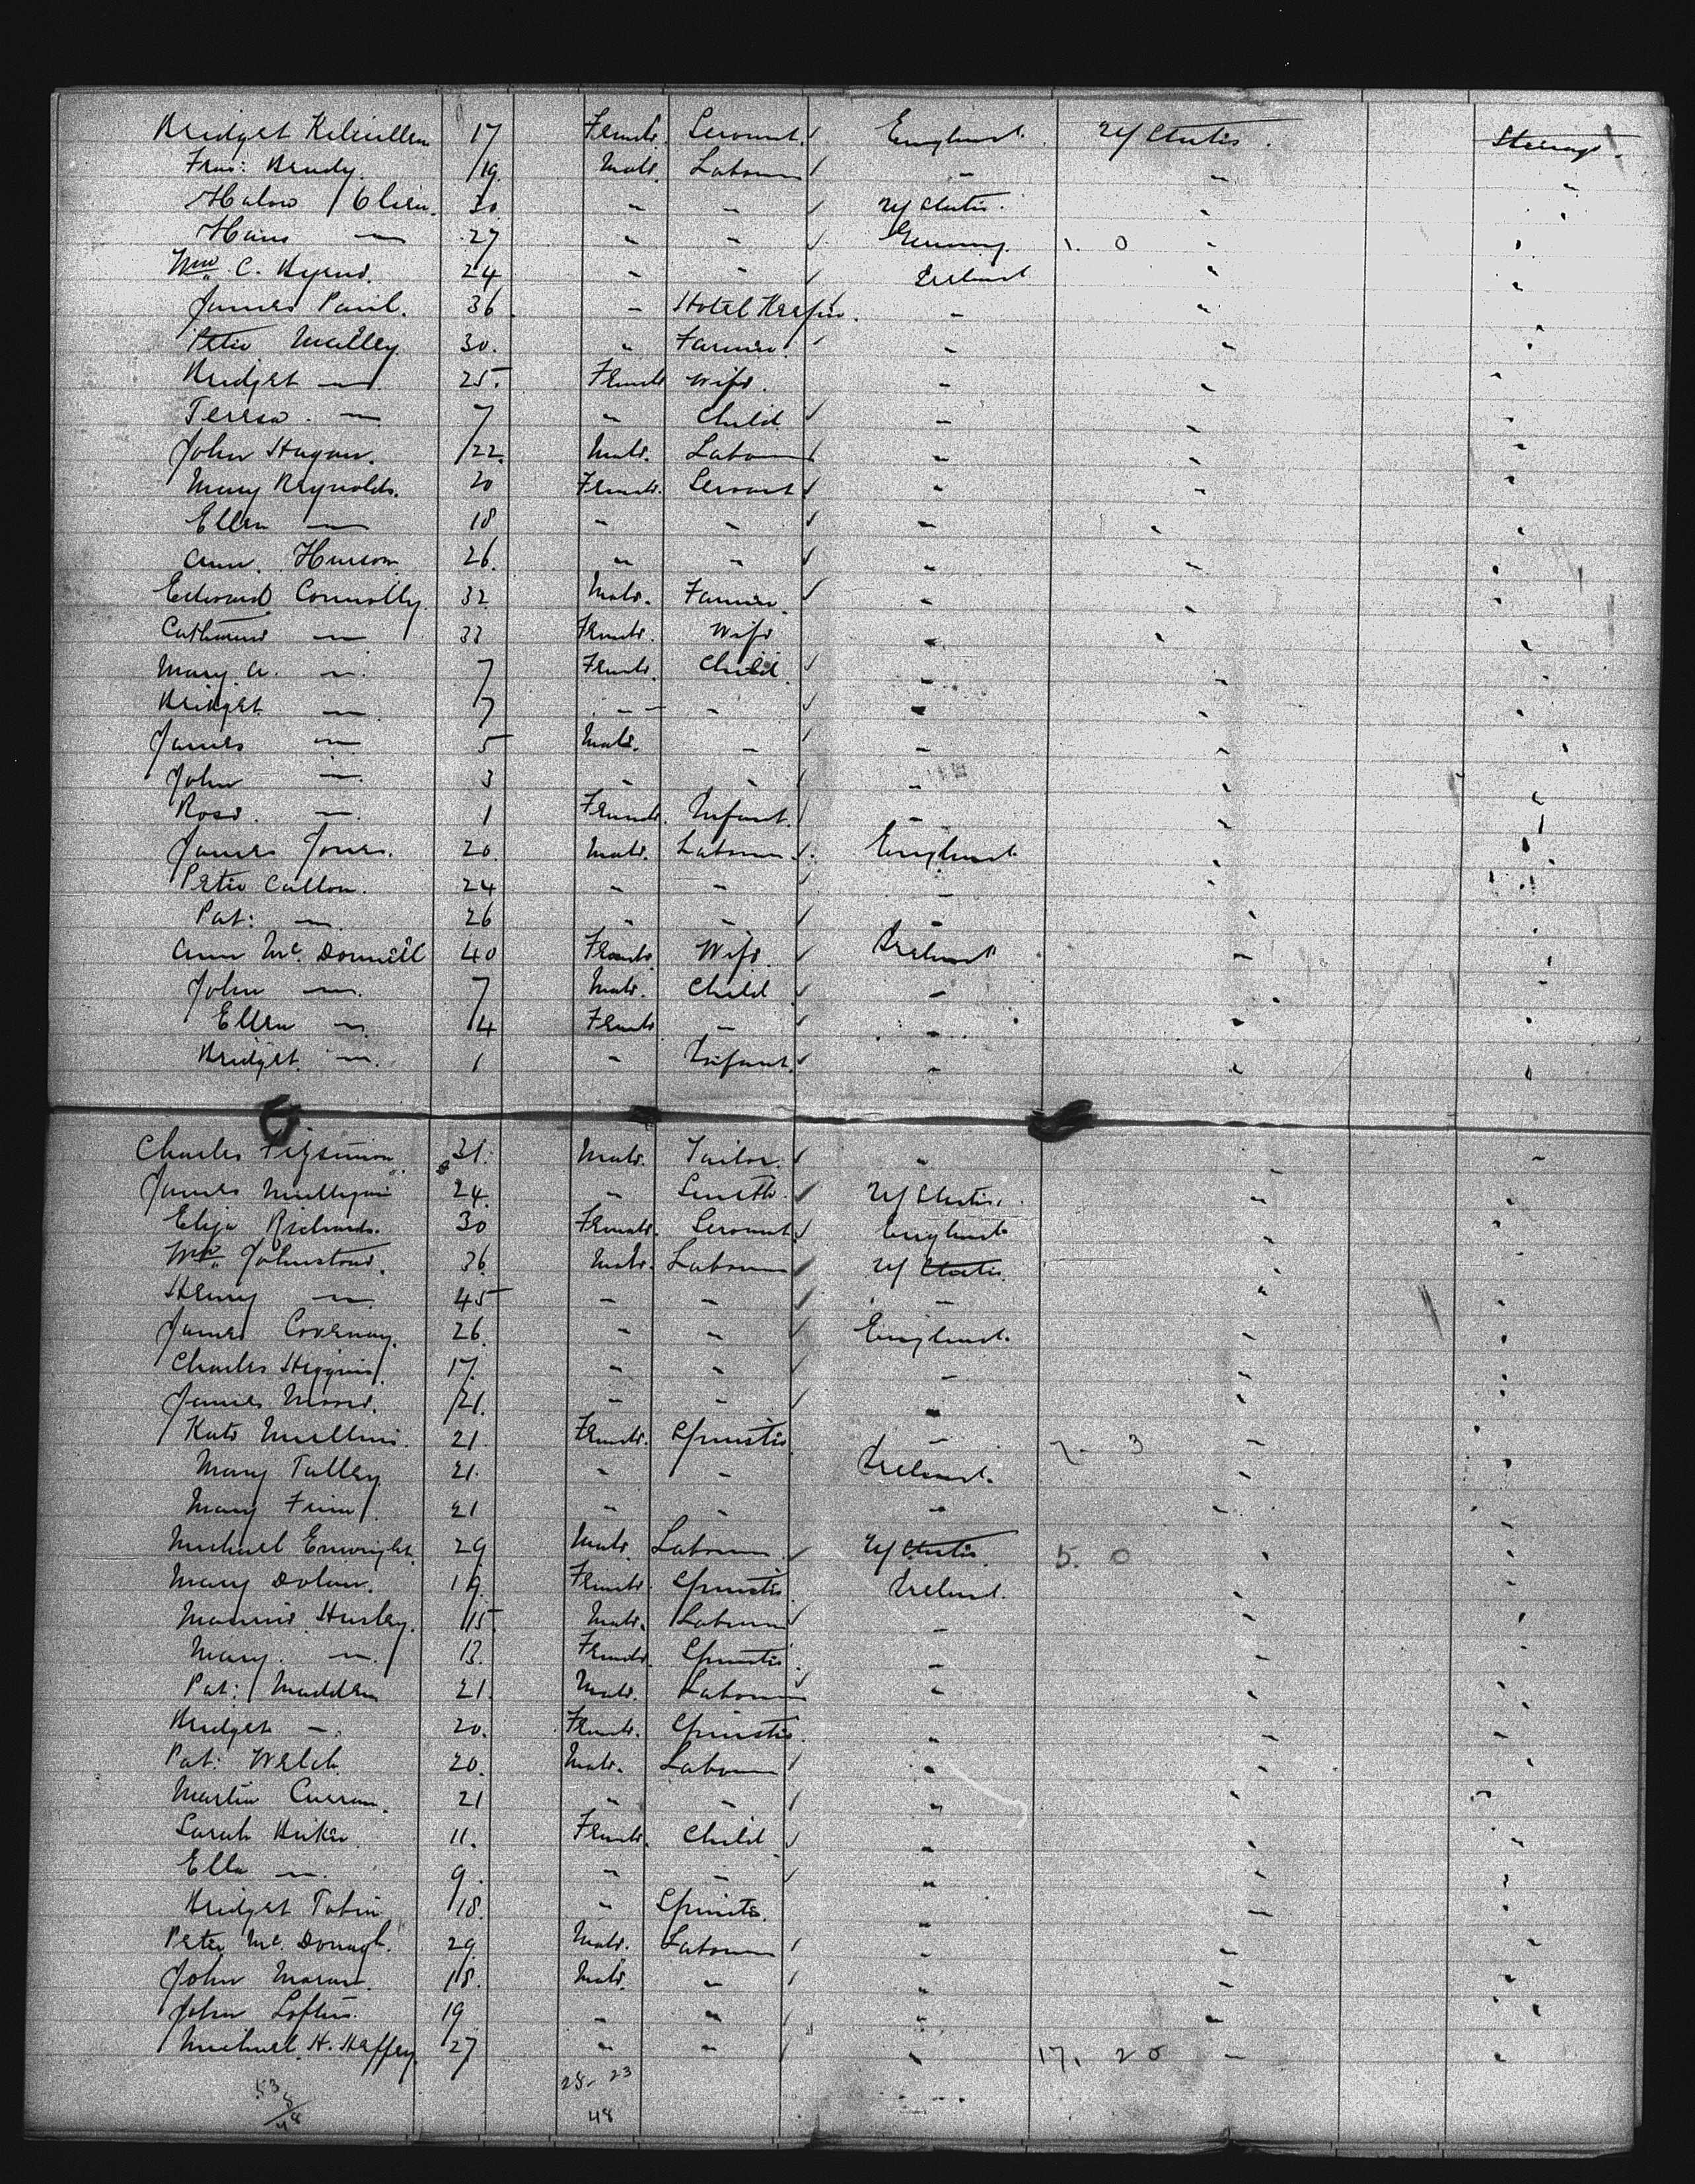 Bridget 17 Female Servant England U/States Steerage
Fras: Brady. 19. Male. Labourer "  " "
30. " " U/States. " "
Hans — 27 " " Germany 1. 0 " "
Wm C. Byrne. 24 " " Ireland " "
James Paul. 36 " Hotel Keeper. " " "
Peter Malley. 30. " Farmer. " " "
Bridget — 25. Female Wife. " " "
Teresa. — 7 " Child " " "
John Hagan. 22. Male. Labourer " " "
Mary Reynolds. 20 Female. Servant " " "
Ellen — 18 " " " " "
Ann. 26. " " " " "
Edward Connolly. 32 Male. Farmer. " " "
Catherine — 33 Female. Wife " " "
Mary A. — 7 Female. Child. " " "
Bridget — 7 " " " " "
James — 5 Male. " " " "
John — 3 " " " " "
Rose. — 1 Female. Infant. " " "
James Jones. 20. Male. Labourer England " "
Peter Callon. 24 " " " " "
Pat: — 26 " " " " "
Ann Mc. Donnell 40 Female. Wife. Ireland " "
John — 7 Male. Child " " "
Ellen — 4 Female " " " "
Bridget. — 1 " Infant. " " "
Charles 31. Male. Tailor. " " "
James 24. " Smith. U/States. " "
Eliza Richards. 30 Female. Servant England " "
Wm. Johnstone. 36. Male. Labourer U/States. " "
Henry — 45 " " " " "
James Coveney. 26. " " England. " "
Charles Higgins 17. " " " " "
James Moore. 21. " " " " "
Kate Mullins. 21. Female. Spinster. " 2 - 3 " "
Mary Talley 21. " " Ireland. " "
Mary Finn 21 " " " " "
Michael Enwright. 29 Male. Labourer. U/States. 5. 0 " "
Mary Dolan. 19. Female. Spinster Ireland. " "
Hurley. 15. Male. Labourer " " "
Mary. — 13. Female. Spinster. " " "
Pat: Madden 21. Male. Labourer " " "
Bridget — 20. Female. Spinster. " " "
Pat: Welch. 20. Male. Labourer " " "
Martin Curran. 21 " " " " "
Sarah 11. Female. Child " " "
Ella — 9. " " " " "
Bridget Tobin 18. " Spinster. " " "
Peter Mc. Donagh. 29. Male. Labourer " " "
John Moran. 18. Male " " " "
John Loftus. 19 " " " " "
Michael H. Heffey. 27 " " " 17. 20 " "
53 25- 23
48